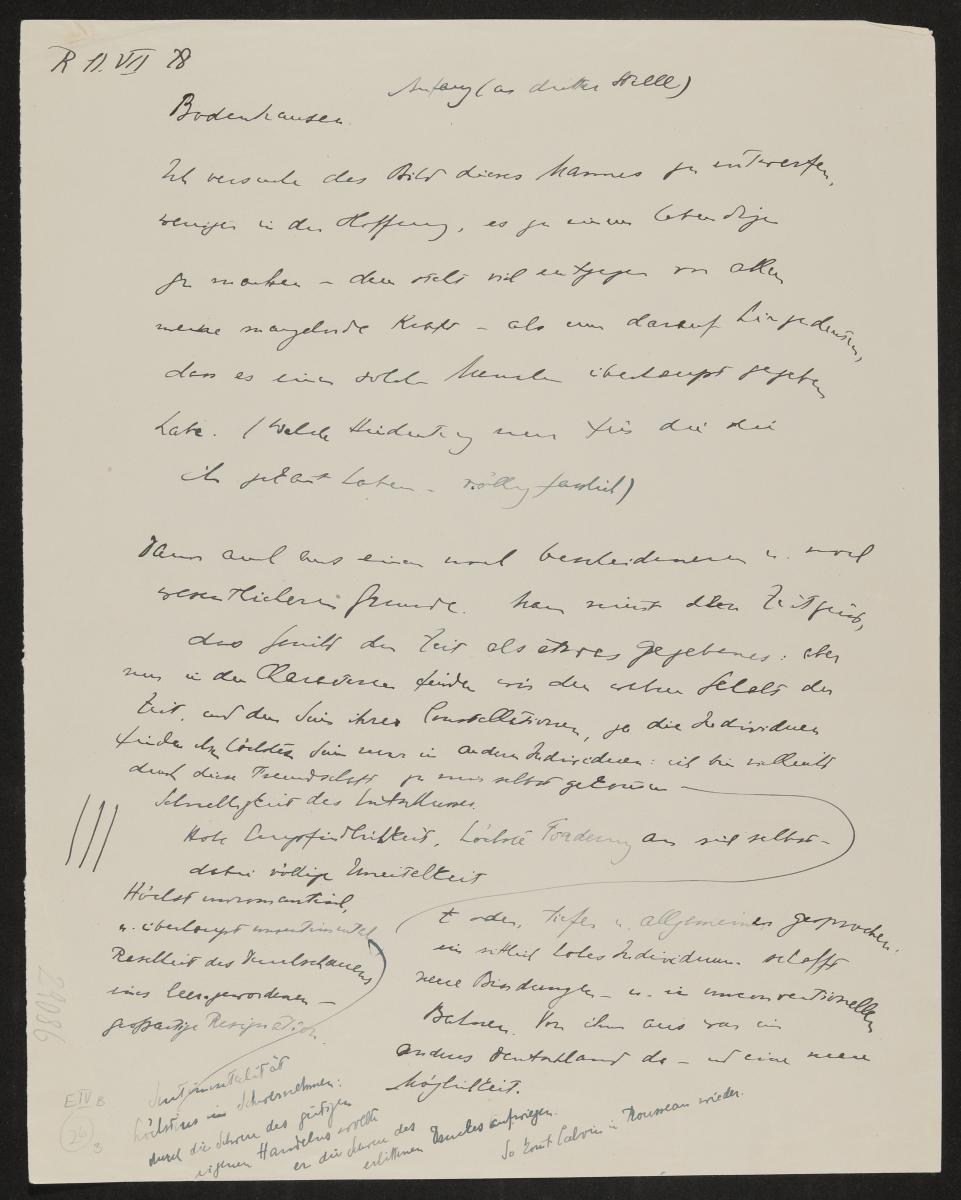 R 11. VII 28
Anfang (an dritter Stelle)
Bodenhausen.
Ich versuche das Bild dieses Mannes zu entwerfen,
weniger in der Hoffnung, es zu einem lebendigen
zu machen – dem steht viel entgegen vor allem
meine mangelnde Kraft – als um darauf hinzudeuten,
dass es einen solchen Menschen überhaupt gegeben
habe. (Welche Hindeutung nun für die die
ich gekannt haben – völlig
Dann auch aus einem noch bescheideneren u. noch
wesentlicheren Grunde. Man nimmt den Zeitgeist,
das Gesicht der Zeit als etwas gegebenes: aber
nur in den Charakteren finden wir den wahren Gehalt der
Zeit, und den Sinn ihrer Constellationen, ja die Individuen
finden ihren höchsten Sinn nur in andern Individuen: ich bin vielleicht
durch diese Freundschaft zu mir selbst gekommen –
Schnelligkeit des Entschlusses.
Hohe Empfindlichkeit, höchste Forderung an sich selbst –
dabei völlige Uneitelkeit
Höchst unromantisch,
u. überhaupt unsentimental
Resultat des Durchschauens
eines leer gewordenen –
großartige Resignation.
oder, tiefer u. allgemeiner gesprochen.
ein sittlich hohes Individuum schafft
neue Bindungen – u. in unconventionellen
Bahnen. Von ihm aus war ein
anderes Deutschland da – und eine neue
Möglichkeit.
Sentimentalität
höchstens im Schwernehmen:
durch die Schwere des geistigen
eigenen Handelns wollte
er die Schwere des
erlittenen aufwiegen.
So kommt Calvin in Rousseau wieder.
24086
E IV B
26
3